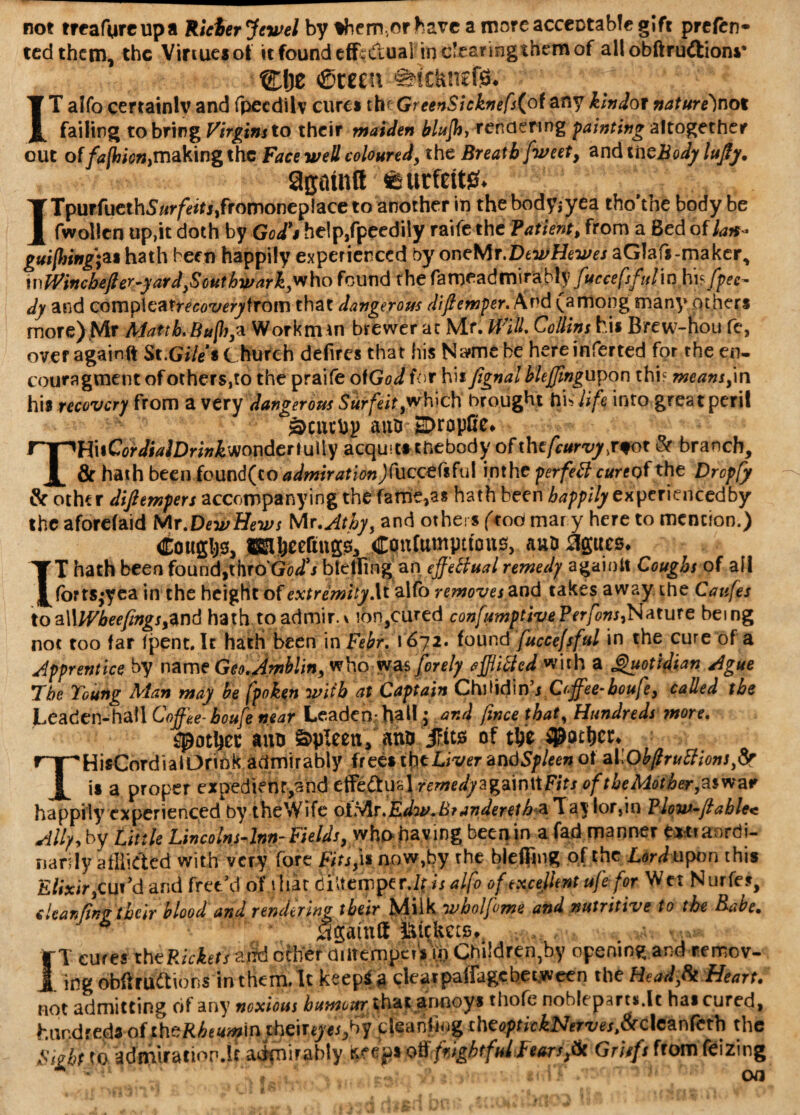 not treaſure up a Richer Jewel by them, or have a more acceptable gift preſen-
ted them, the Virtues of it found effectual in clearing them of all obſtructions.
The Green Sickneſs.
IT alſo certainly and ſpeedily cures the Green Sickneſs (of any kind or nature) not
failing to bring Virgins to their maiden bluſh, rendering painting altogether
out of faſhion, making the Face well coloured, the Breath ſweet, and the Body luſty.
Againſt Surfeits.
IT purſueth Surfeits, from one place to another in the body; yea tho' the body be
ſwollen up, it doth by God's help, ſpeedily raiſe the Patient, from a Bed of lan-
guiſhing; as hath been happily experienced by one Mr. Dew Hewes a Glaſs-maker,
in Wincheſter-yard, Southwark, who found the ſame admirably ſucceſsful in his ſpee-
dy and compleat recovery from that dangerous diſtemper. And (among many others
more) Mr Matth. Buſh, a Workman brewer at Mr. Will. Collins his Brew-houſe,
over againſt St. Gile's Church deſires that his Name be here inſerted for the en-
couragment of others, to the praiſe of God for his ſignal bleſſing upon this means, in
his recovery from a very dangerous Surfeit, which brought his life into great peril
Scurvy and Dropſie.
THis Cordial Drink wonderfully acquits the body of the ſcurvy, root & branch,
& hath been found (to admiration) ſucceſsful in the perfect cure of the Dropſy
& other diſtempers accompanying the ſame, as hath been happily experienced by
the aforeſaid Mr. Dew Hews Mr. Athy, and others (too many here to mention.)
Coughs, Wheeſings, Conſumptions, and Agues.
IT hath been found, thro' God's bleſſing an effectual remedy againſt Coughs of all
ſorts; yea in the height of extremity. It alſo removes and takes away the Cauſes
to all Wheeſings, and hath to admiration, cured conſumptive Perſons, Nature being
not too far ſpent. It hath been in Febr. 1672. found ſucceſsful in the cure of a
Apprentice by name Geo. Amblin, who was ſorely afflicted with a Quotidian Ague
The Young Man may be ſpoken with at Captain Chilidin's Coffee-houſe, called the
Leaden-hall Coffee-houſe near Leaden-hall; and ſince that, Hundreds more.
Mother and Spleen, and Fits of the Mother.
THis Cordial Drink admirably frees the Liver and Spleen of al: Obſtructions, &
is a proper expedient, and effectual remedy againſt Fits of the Mother, as was
happily experienced by the Wife of Mr. Edw. Brandereth a Taylor, in Plow-ſtable
Ally, by Little Lincolns-Inn-Fields, who having been in a ſad manner extraordi-
narily afflicted with very ſore Fits, is now, by the bleſſing of the Lord upon this
Elixir, cur'd and free'd of that diſtemper. It is alſo of excellent uſe for Wet Nurſes,
cleanſing their blood and rendering their Milk wholſome and nutritive to the Babe.
Againſt Rickets.
IT cures the Rickets and other diſtempers in Children, by opening and remov-
ing obſtructions in them. It keeps a clear paſſage between the Head, & Heart.
not admitting of any noxious humour that annoys thoſe noble parts. It has cured,
hundreds of the Rheum in their eyes, by cleanſing the optick Nerves, & cleanſeth the
Sight to admiration. It admirably keeps off frightful Fears, & Griefs from ſeizing
on